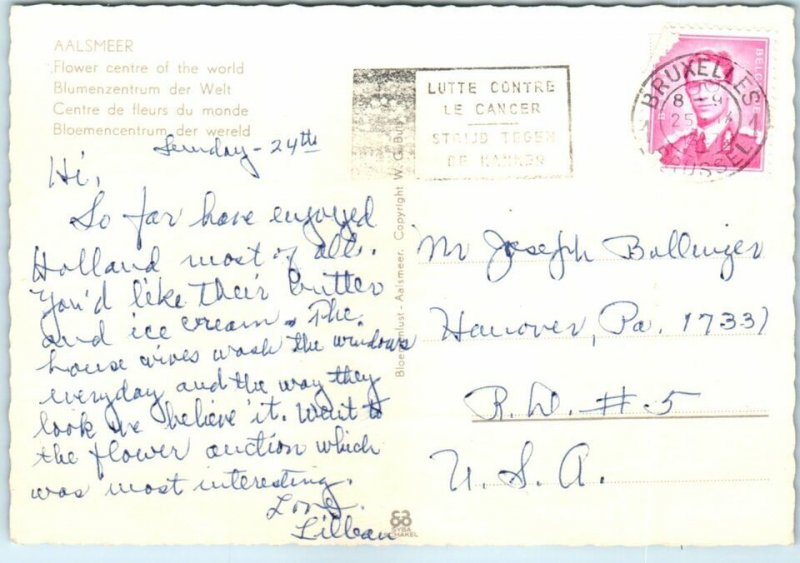 AALSMEER
Flower centre of the world
Blumenzentrum der Welt
Centre de fleurs du monde
Bloemencentrum der wereld
Sunday - 24th
Hi,
So far have enjoyed
Holland most of all.
You'd like their butter
and ice cream. The
house wives wash the windows
everyday and the way they
look we believe it. Went to
the flower auction which
was most interesting.
Love,
Lillian
LUTTE CONTRE
LE CANCER
STRIJD TEGEN
DE KANKER
BRUXELLES
8 - 9
25
BRUSSEL
BELG
Mr Joseph Bollinger
Hanover, Pa. 17331
R.D. #5
U.S.A.
Bloemenlust - Aalsmeer, Copyright W. G.